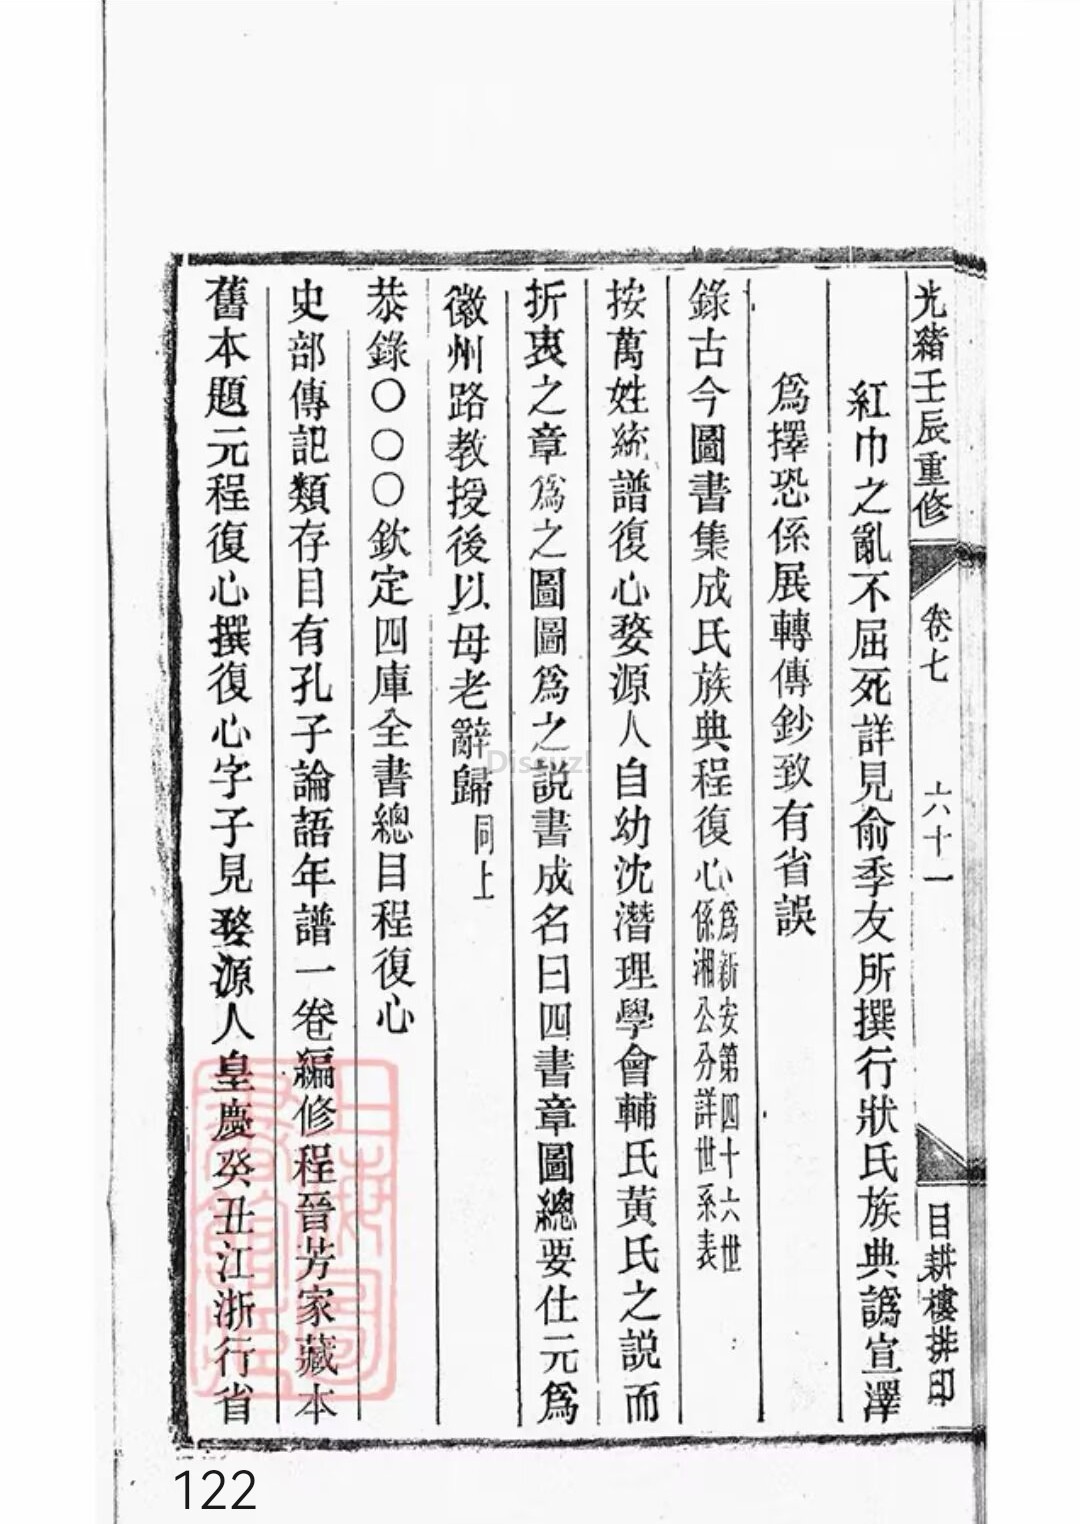 光緒壬辰重修
卷七
六十一
目耕樓排印
紅巾之亂不屈死詳見俞季友所撰行狀氏族典譌宣澤
爲擇恐係展轉傳鈔致有省誤
錄古今圖書集成氏族典程復心爲新安第四十六世係湘公分詳世系表
按萬姓統譜復心婺源人自幼沈潛理學會輔氏黃氏之説而
折衷之章爲之圖圖爲之説書成名曰四書章圖總要仕元爲
徽州路教授後以母老辭歸同上
恭錄〇〇〇欽定四庫全書總目程復心
史部傳記類存目有孔子論語年譜一卷編修程晉芳家藏本
舊本題元程復心撰復心字子見婺源人皇慶癸丑江浙行省
上海圖書館藏
Discuz!
122